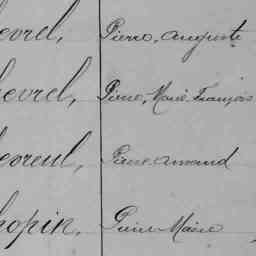 evrel, Pierre, Auguste
evrel, Pierre, Marie, François
evreul, Pierre Armand
hopin, Pierre Marie